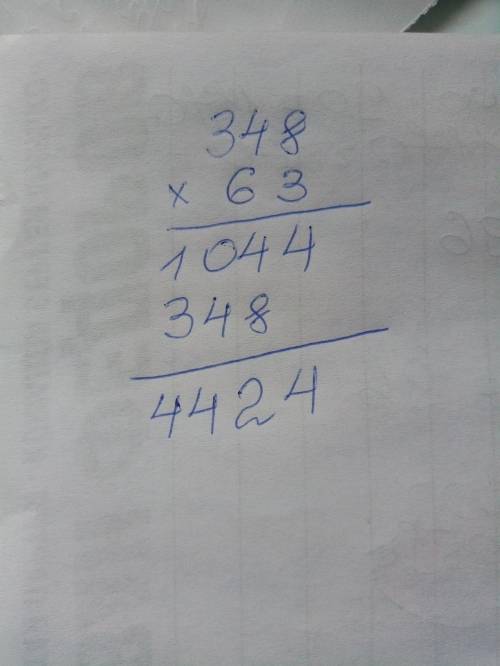 348
× 63
1044
348
4424